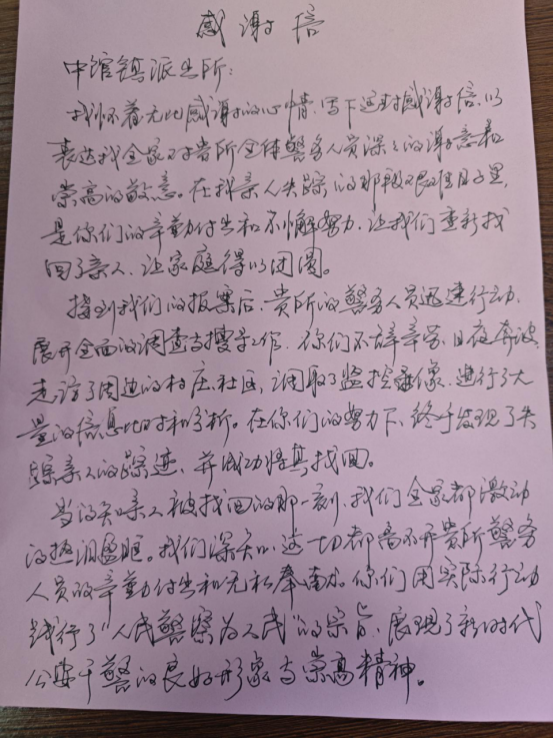 感谢信
中馆镇派出所：
我怀着无比感谢的心情，写下这封感谢信，以
表达我全家对贵所全体警务人员深深的谢意和
崇高的敬意。在我亲人失踪的那段艰难日子里，
是你们的辛勤付出和不懈努力，让我们重新找
回了亲人，让家庭得以团圆。
接到我们的报案后，贵所的警务人员迅速行动，
展开全面的调查与搜寻工作，你们不辞辛劳，日夜奔波，
走访了周边的村庄、社区，调取了监控录像，进行了大
量的信息比对和分析。在你们的努力下，终于发现了失
踪亲人的踪迹，并成功将其找回。
当得知亲人被找回的那一刻，我们全家都激动
的热泪盈眶。我们深知，这一切都离不开贵所警务
人员的辛勤付出和无私奉献。你们用实际行动
践行了“人民警察为人民”的宗旨，展现了新时代
公安干警的良好形象与崇高精神。